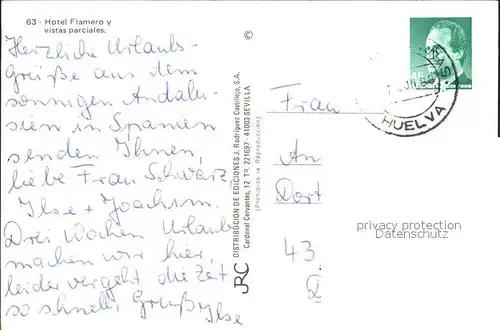 63 - Hotel Flamero y
vistas parciales.
Herzliche Urlaubs-
grüße aus dem
sonnigen Andalu-
sien in Spanien
senden Ihnen,
liebe Frau Schwarz
Ilse + Joachim.
Drei Wochen Urlaub
machen wir hier,
leider vergeht die Zeit
so schnell, Gruß Ilse
©
DISTRIBUCION DE EDICIONES J. Rodríguez Castillejo, S.A.
Cardenal Cervantes, 12 Tº. 221697 - 41003 SEVILLA
(Prohibida la Reproducción)
JRC
HUELVA
Frau
An
Dort
43
privacy protection
Datenschutz